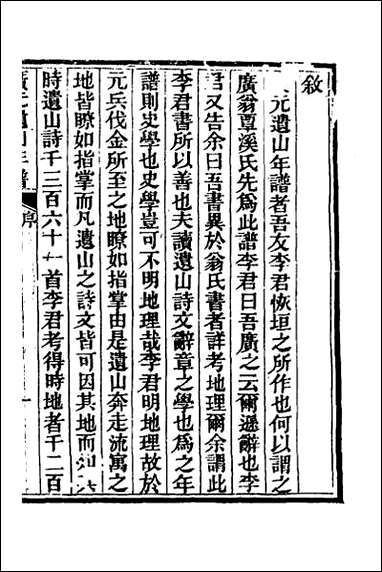 敘
元遺山年譜者吾友李君恢垣之所作也何以謂之
廣翁覃溪氏先爲此譜李君曰吾廣之云爾遜辭也李
君又告余曰吾書異於翁氏書者詳考地理爾余謂此
李君書所以善也夫讀遺山詩文辭章之學也爲之年
譜則史學也史學豈可不明地理哉李君明地理故於
元兵伐金所至之地瞭如指掌由是遺山奔走流寓之
地皆瞭如指掌而凡遺山之詩文皆可因其地而知
時遺山詩千三百六十一首李君考得時地者千二百